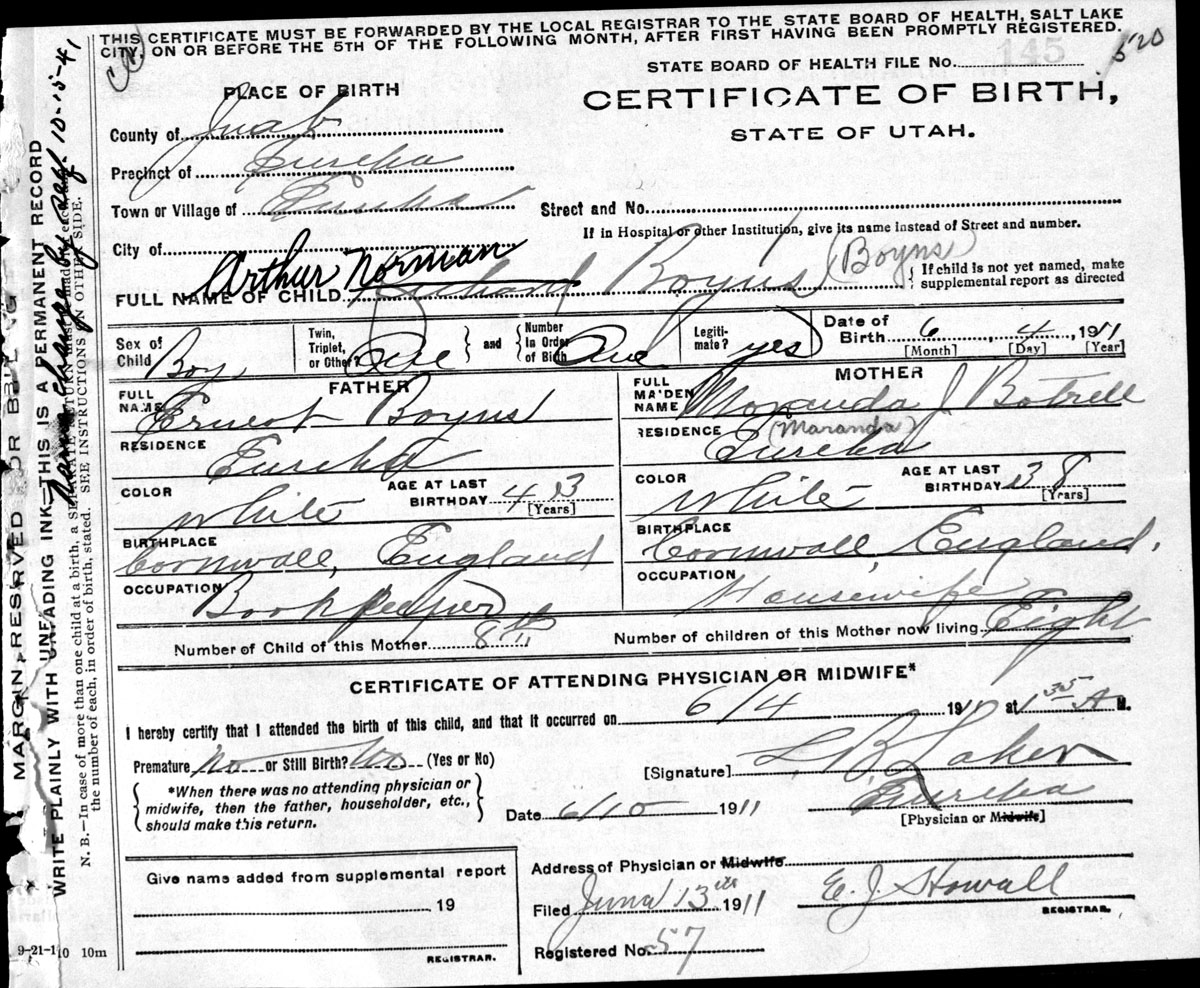 THIS CERTIFICATE MUST BE FORWARDED BY THE LOCAL REGISTRAR TO THE STATE BOARD OF HEALTH, SALT LAKE
CITY, ON OR BEFORE THE 5TH OF THE FOLLOWING MONTH, AFTER FIRST HAVING BEEN PROMPTLY REGISTERED.
STATE BOARD OF HEALTH FILE No. 145
520
PLACE OF BIRTH
CERTIFICATE OF BIRTH,
STATE OF UTAH.
County of Juab
Precinct of Eureka
Town or Village of Eureka
Street and No.
If in Hospital or other Institution, give its name instead of Street and number.
City of
Arthur Norman
(Boyns)
FULL NAME OF CHILD Richard Boyns
If child is not yet named, make
supplemental report as directed
Sex of Child Boy
Twin, Triplet, or Other? One and Number In Order of Birth One
Legitimate? yes
Date of Birth 6 4, 1911
[Month] [Day] [Year]
FATHER
FULL NAME Ernest Boyns
RESIDENCE Eureka
COLOR White
AGE AT LAST BIRTHDAY 43
[Years]
BIRTHPLACE
Cornwall, England
OCCUPATION Bookkeeper
MOTHER
FULL MAIDEN NAME Moranda J Botrell
(Maranda)
RESIDENCE Eureka
COLOR White
AGE AT LAST BIRTHDAY 38
[Years]
BIRTHPLACE
Cornwall, England,
OCCUPATION Housewife
Number of Child of this Mother 8th
Number of children of this Mother now living Eight
CERTIFICATE OF ATTENDING PHYSICIAN OR MIDWIFE*
I hereby certify that I attended the birth of this child, and that it occurred on 6/4 1911 at 1 A M.
Premature no or Still Birth? no (Yes or No)
*When there was no attending physician or
midwife, then the father, householder, etc.,
should make this return.
[Signature]
Eureka
Date 6/10 1911
[Physician or Midwife]
Give name added from supplemental report
19
REGISTRAR.
Address of Physician or Midwife
Filed June 13th 1911
E. J. Howall
REGISTRAR.
Registered No. 57
9-21-10 10m
MARGIN RESERVED FOR
WRITE PLAINLY WITH UNFADING INK—THIS IS A PERMANENT RECORD
Name change by 10-15-41
N. B.—In case of more than one child at a birth, a SEPARATE RETURN must be made for each, and
the number of each, in order of birth, stated. SEE INSTRUCTIONS ON OTHER SIDE.